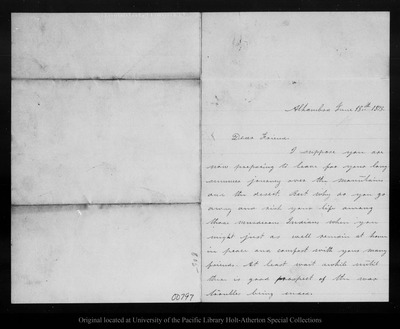 Alhambra June 15th 187
Dear Friend
I suppose you are
now preparing to leave for your long
summer journey over the mountains
and the desert. But why do you go
away and risk your life among
those murderous Indians when you
might just as well remain at home
in peace and comfort with your many
friends. At least wait until
there is good prospect of the
troubles being
00797
Original located at University of the Pacific Library Holt-Atherton Special Collections